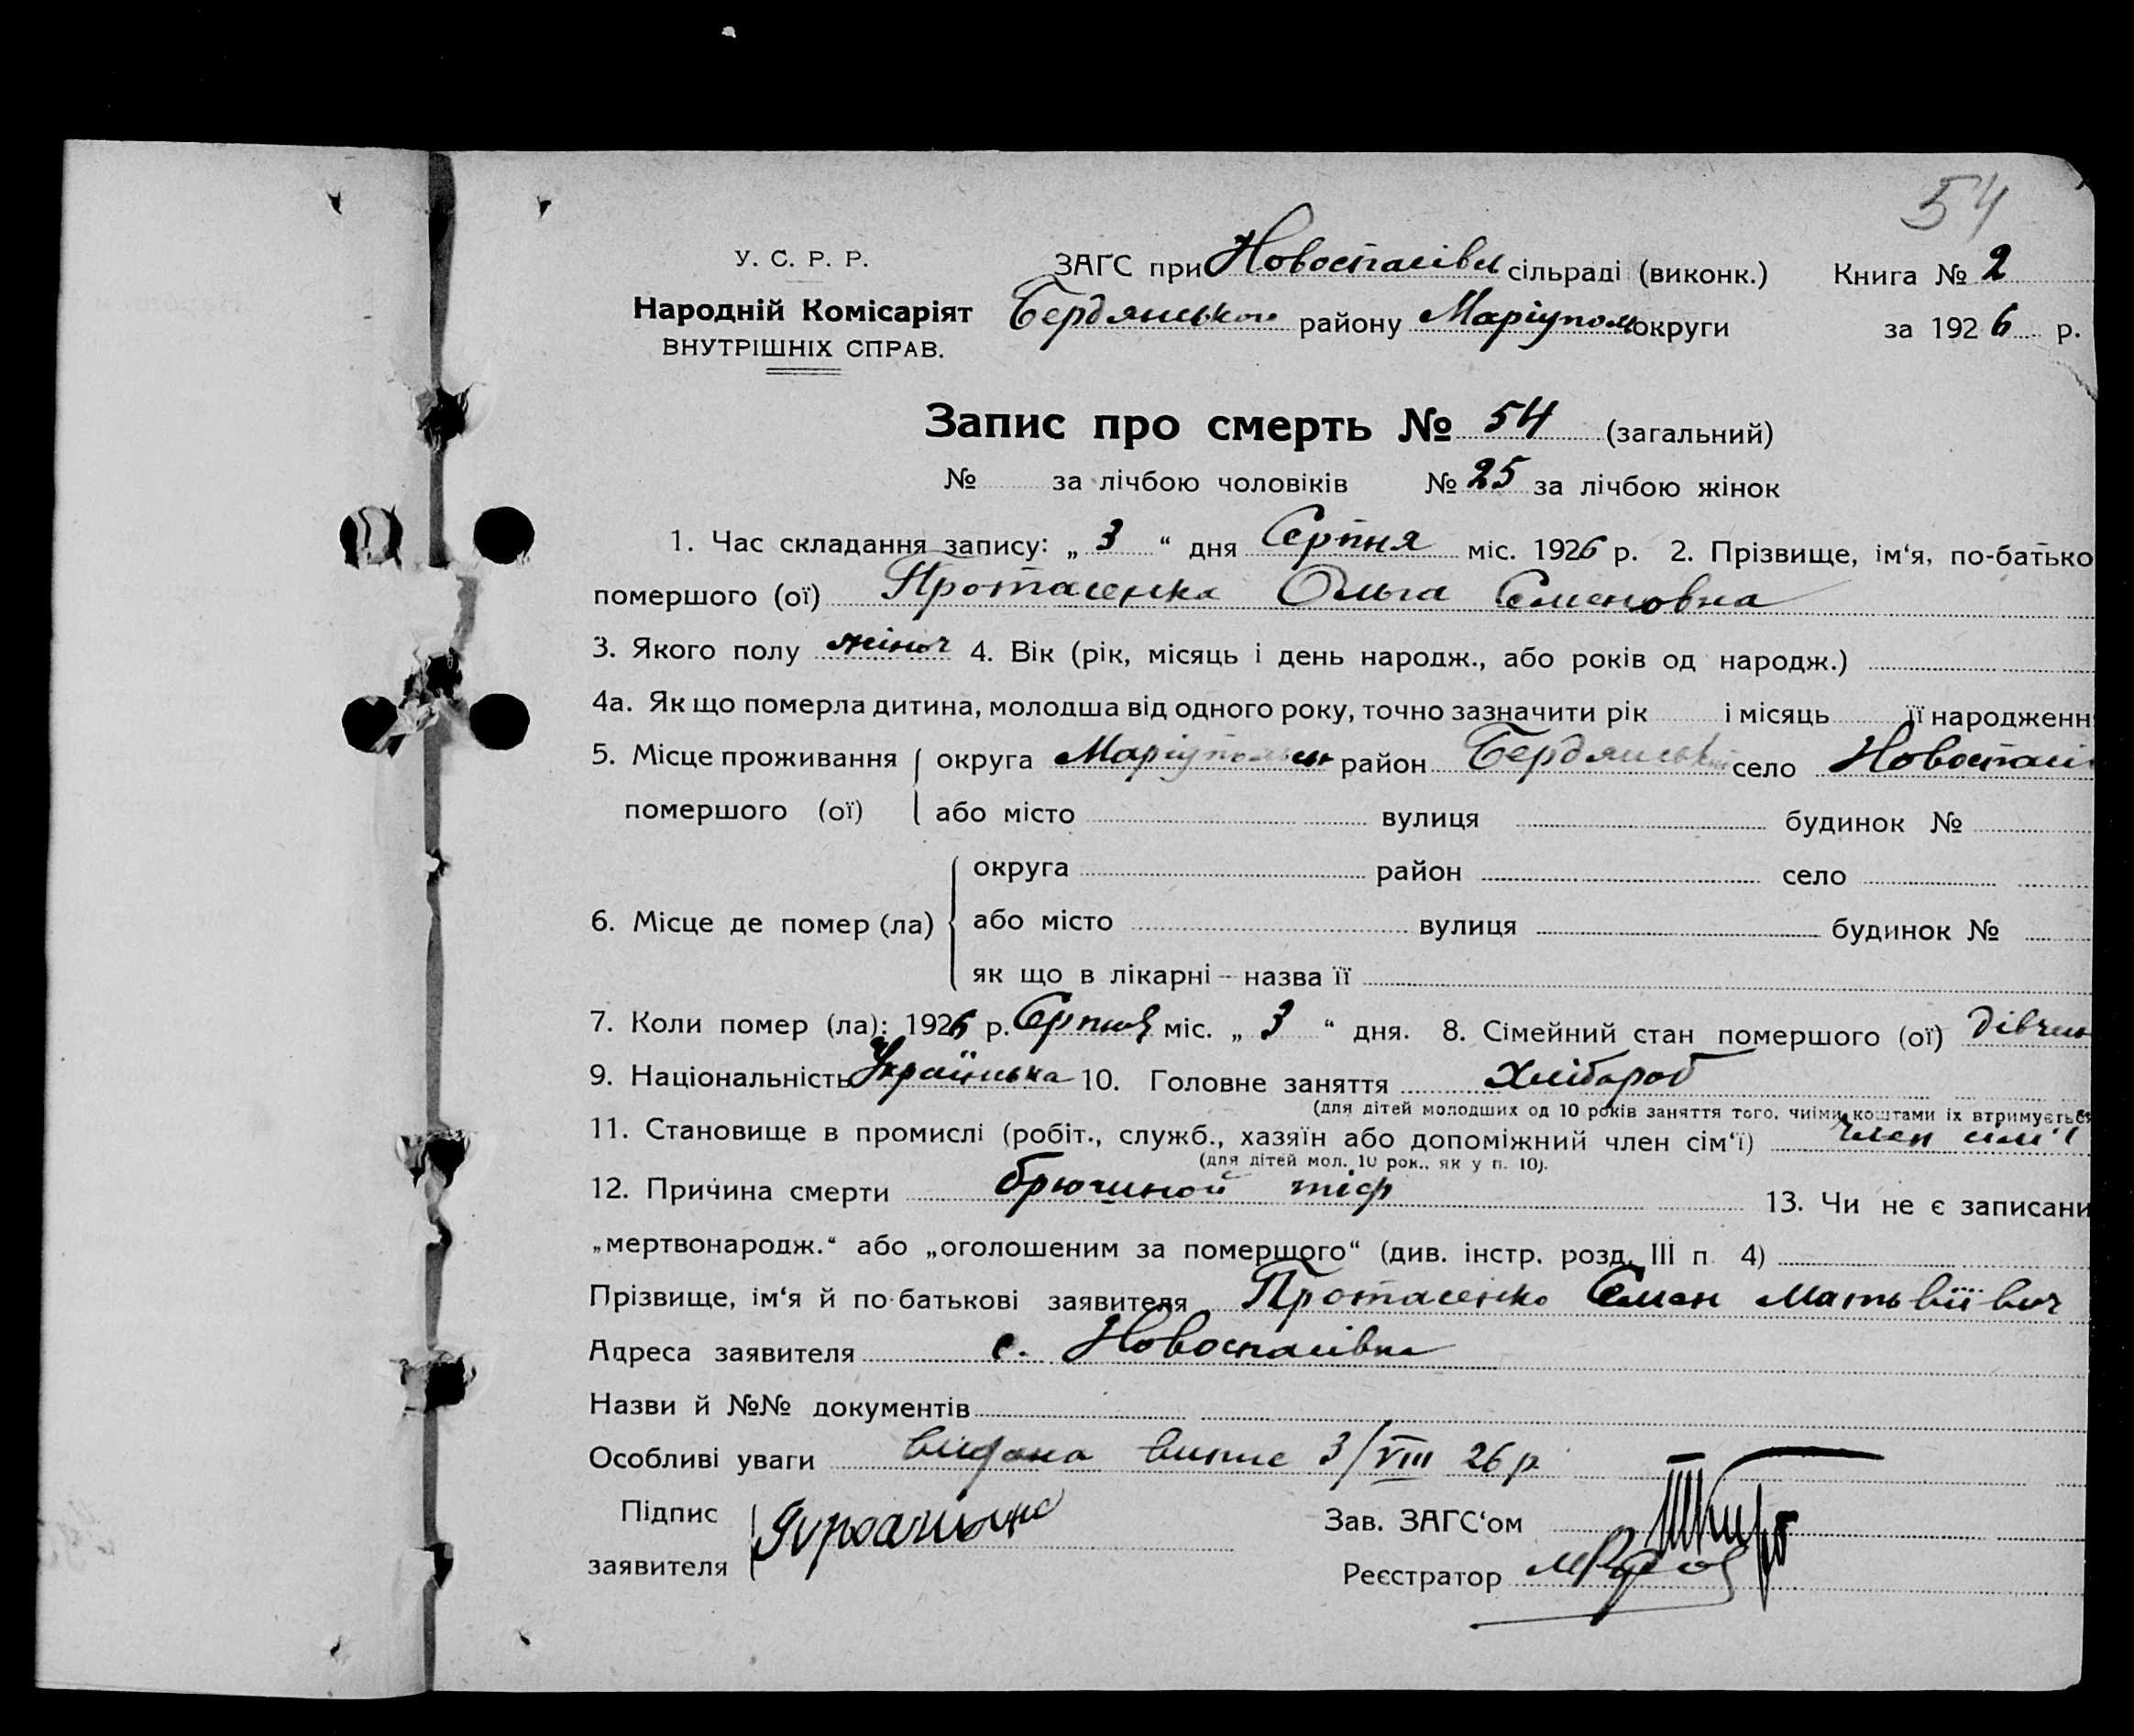 54
У. С. Р. Р. ЗАГС при Новоспасівск сільраді (виконк.) Книга № 2
Народній Комісаріят Бердянського району Маріупольокруги за 1926 р.
ВНУТРІШНІХ СПРАВ.
Запис про смерть № 54 (загальний)
№ за лічбою чоловіків № 25 за лічбою жінок
1. Час складання запису: „ 3 “ дня Серпня міс. 1926 р. 2. Прізвище, ім‘я, по-батько
помершого (ої) Протасенко Ольга Семеновна
3. Якого полу жіноч 4. Вік (рік, місяць і день народж., або років од народж.)
4а. Як що померла дитина, молодша від одного року, точно зазначити рік і місяць її народженн
5. Місце проживання округа район Бердянський село Новоспасі
помершого (ої) або місто вулиця будинок №
округа район село
6. Місце де помер (ла) або місто вулиця будинок №
як що в лікарні — назва її
7. Коли помер (ла): 1926 р. Серпня міс. „ 3 “ дня. 8. Сімейний стан помершого (ої)
9. Національність Українська 10. Головне заняття Хлібороб
(для дітей молодших од 10 років заняття того, чиїми коштами їх втримується
11. Становище в промислі (робіт., служб., хазяїн або допоміжний член сім‘ї) член сім'ї
(для дітей мол. 10 рок., як у п. 10).
12. Причина смерти брюшной тіф 13. Чи не є записани
„мертвонародж.“ або „оголошеним за померщого“ (див. інстр. розд. III п. 4)
Прізвище, ім‘я й по-батькові заявителя Протасенко Семен Матьвіївич
Адреса заявителя с. Новоспасівка
Назви й №№ документів
Особливі уваги видана випис 3/VIII 26 р
Підпис Зав. ЗАГС‘ом
заявителя Реєстратор